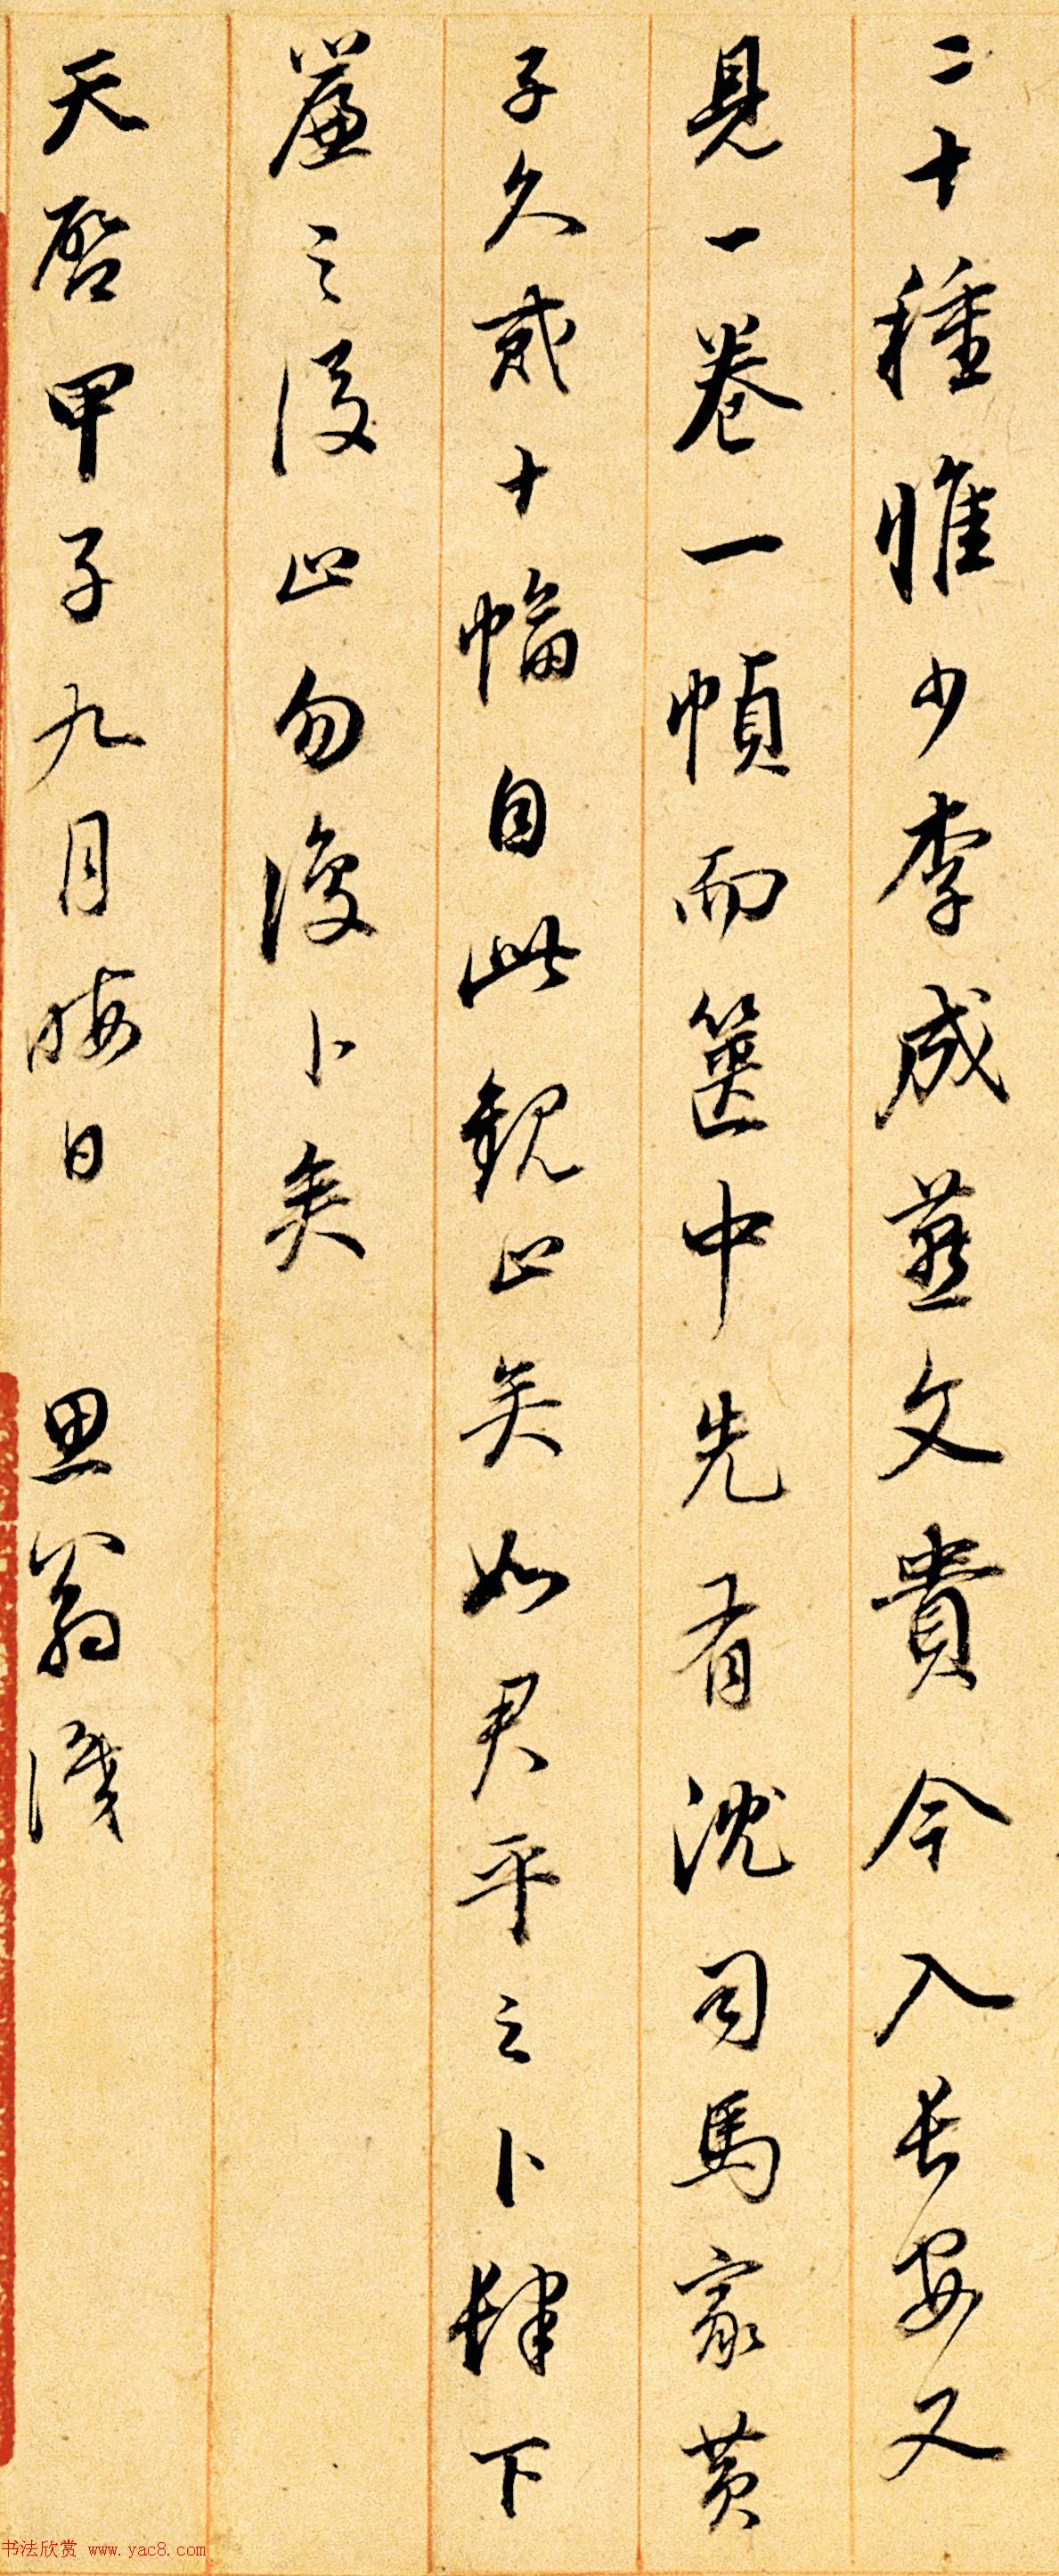 二十種惟少李成燕文貴今入長安又
見一卷一幀而篋中先有沈司馬家黃
子久貳十幅自此觀止矣如君平之卜肆下
簾之後止勿復卜矣
天啓甲子九月晦日 思翁識
书法欣赏 www.yac8.com